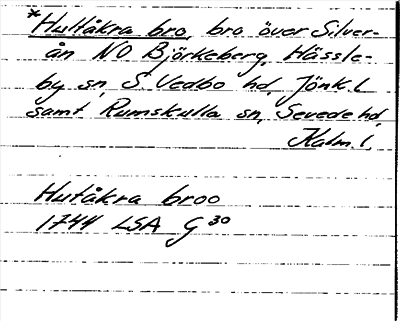 *Hultåkra bro, bro över Silver-
ån NO Björkeberg, Hässle-
by sn, S. Vedbo hd, Jönk. l.
samt Rumskulla sn, Sevede hd,
Kalm. l.
Hutåkra broo
1744 LSA G 30